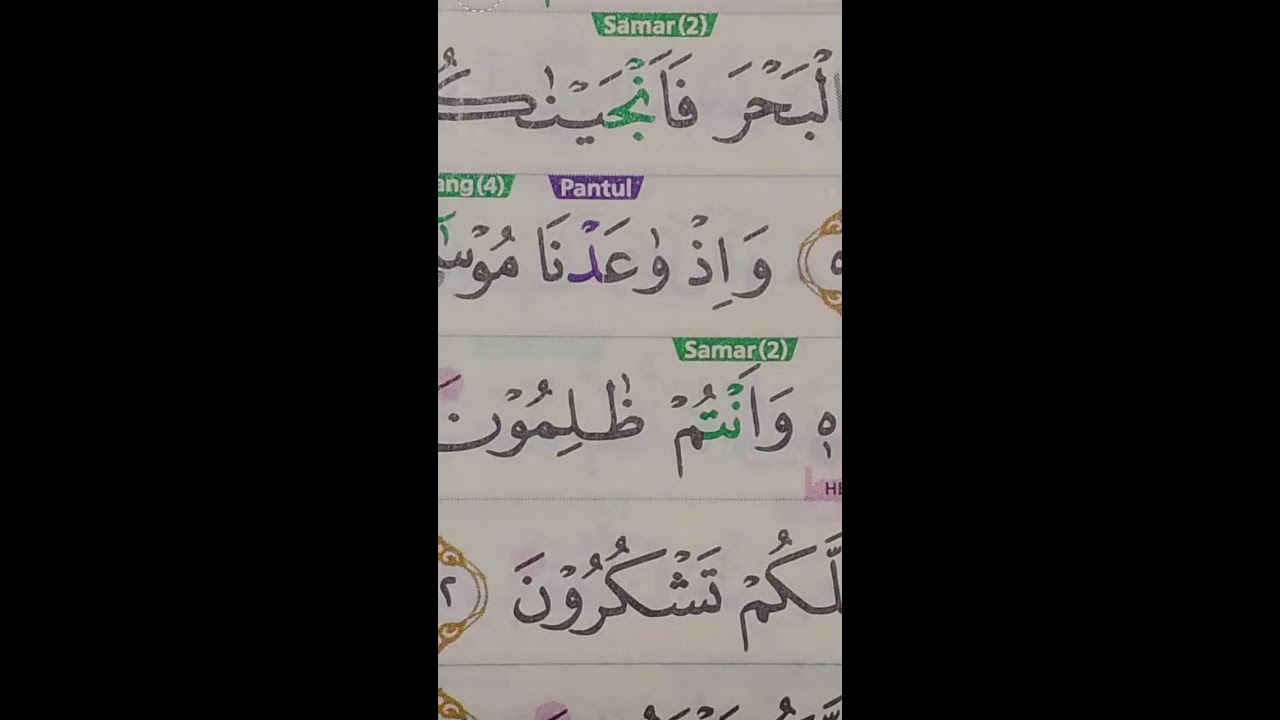 Samar (2)
الْبَحْرَ فَاَنْجَيْنٰكُ
ang (4) Pantul
وَاِذْ وٰعَدْنَا مُوْسٰٓى
Samar (2)
هٖ وَاَنْتُمْ ظٰلِمُوْنَ
لَّكُمْ تَشْكُرُوْنَ